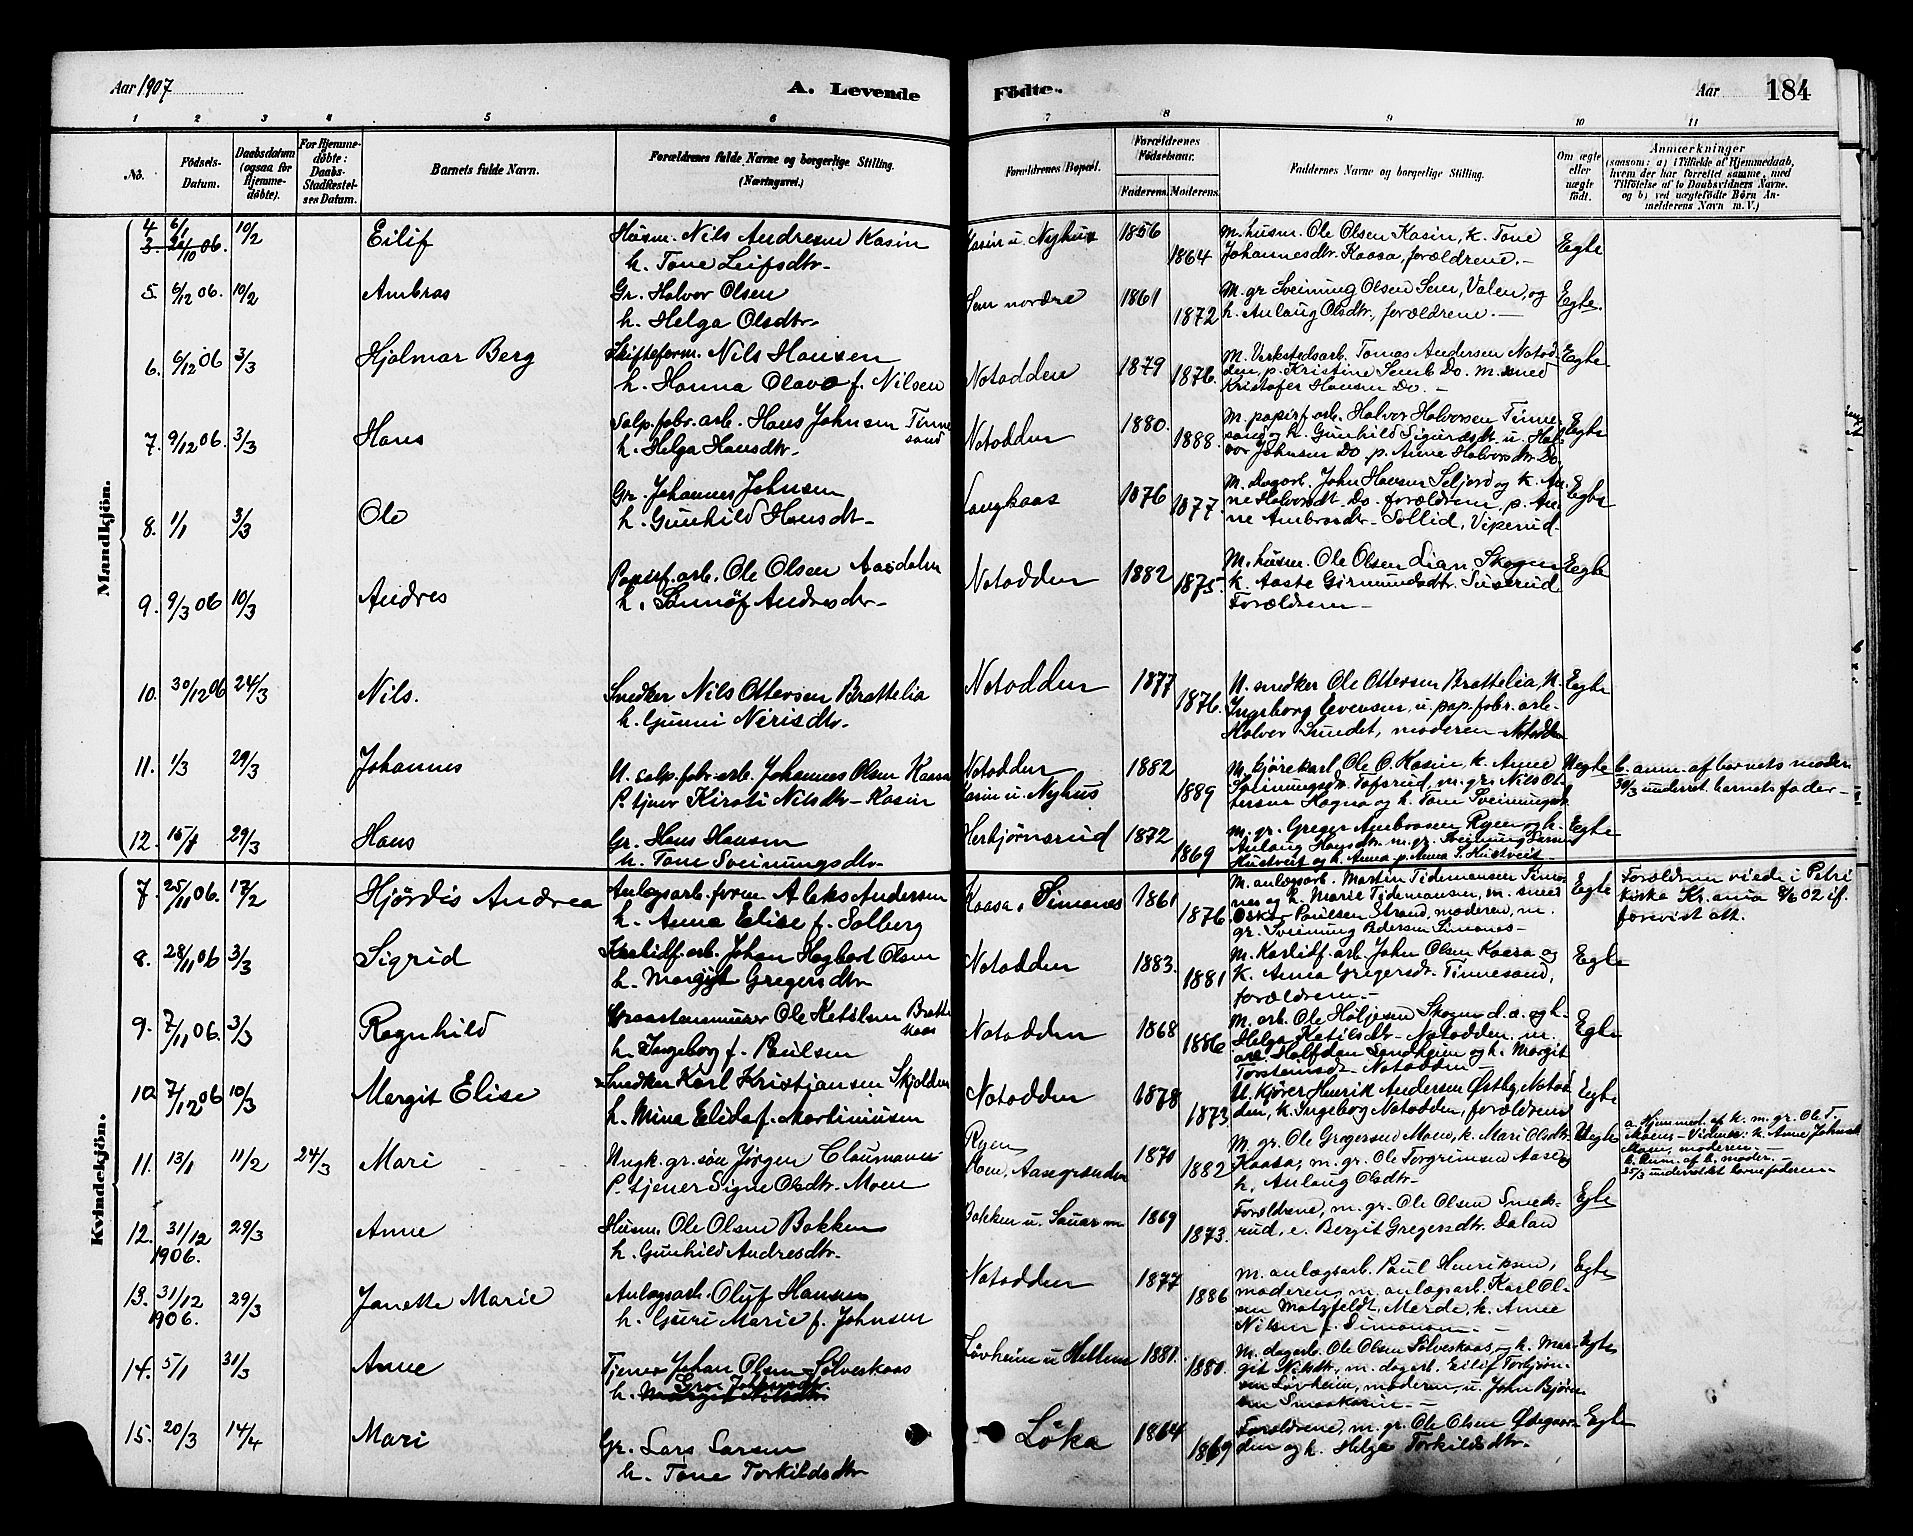 Aar 1907
A. Levende
Födte.
Aar
184
1 2 3 4 5 6 7 8 9 10 11
No.
Födsels-Datum.
Daabsdatum (ogsaa for Hjemme-døbte).
For Hjemme-døbte: Daabs-Stadfæstel-ses Datum.
Barnets fulde Navn.
Forældrenes fulde Navne og borgerlige Stilling. (Næringsvei.)
Forældrenes Bopæl.
Forældrenes Födselsaar.
Faderens. Moderens.
Faddernes Navne og borgerlige Stilling.
Om ægte eller uægte født.
Anmærkninger
(saasom: a) i Tilfælde af Hjemmedaab, hvem der har forrettet samme, med Tilföielse af to Daabsvidners Navne. og b) ved uægtefödte Börn Anmelderens Navn m. V.)
Mandkjön.
4 6/1 10/2 Eilif Husm. Nils Andresen Kasin
3. 26/10 06.
h. Tone Leifsdtr.
Kasin u. Nyhus 1856 1864
M. husm. Ole Olsen Kasin, k. Tone
Johannesdtr. Kaasa, forældrene. Egte
5. 6/12 06. 10/2 Ambros Gr. Halvor Olsen
h. Helga Olsdtr.
Sem nordre 1861 1872
M. gr. Sveinung Olsen Sem, Valen, og
h. Anlaug Olsdtr., forældrene. Egte.
6. 6/12 06 3/3 Hjalmar Berg Skifteform. Nils Hansen
h. Hanna Olava f. Nilsen
Notodden 1879 1876.
M. Verkstedsarb. Tomas Andersen Notod-
den, p. Kristine Semb Do. m. smed
Kristofer Hansen Do. Egte
7. 9/12 06. 3/3 Hans Salp. fabr. arb. Hans Johnsen Tinne
sand
h. Helga Hansdtr.
Notodden 1880. 1888.
M. papirf. arb. Halvor Halvorsen Tinne
sand og h. Gunhild Sigurdsdt. u. Hal-
vor Johnsen Do. p. Anne Halvorsdtr. Do. Egte
8. 1/1 3/3 Ole Gr. Johannes Johnsen
h. Gunhild Hansdt.
Langkaas 1876 1877.
M. Dagarb. John Hansen Seljord og k. An-
ne Halvorsdt. Do. forældrene, p. An-
ne Ambrosdtr. Sollid, Viperud. Egte
9. 9/3 06 10/3 Andres Papirf. arb. Ole Olsen Aasdalen
h. Sunnöf Andresdtr.
Notodden 1882 1875.
M. husm. Ole Olsen Lian, Skogen
k. Aaste Girmundsdt. Suserud
Forældrene Egte
10. 30/12 06 24/3 Nils. Snedker Nils Ottersen Brattelia
h. Gunni Nirisdtr.
Notodden 1877 1876.
U. snedker Ole Ottersen Brattelia, u.
Ingeborg Evensen, u. pap. fabr. arb.
Halvor Sundet, moderen Notodden Egte
11. 1/3 29/3 Johannes U. salp. fabr. arb. Johannes Olsen Kaasa
P. tjener Kirsti Nilsdtr. Kasin
Notodden
Kasin u. Nyhus 1882 1889
M. kjørekarl Ole O. Kasin, k. Anne
Sveinungsdtr. Tofsrud, m. gr. Nils Ot-
tersen Hagna og h. Tone Sveinungsdt. Uegte
b. anm. af barnets moder
30/3 underret. barnets fader
12. 15/1 29/3 Hans Gr. Hans Hansen
h. Tone Sveinungsdtr.
Herbjørnsrud 1872 1869
M. gr. Greger Ambrosen Ryen og h.
Anlaug Hansdtr. m. gr. Sveinung Larsen
Hustveit og h. Anna p. Anna S. Hustveit Egte
Kvindekjön.
7. 25/11 06. 17/2 Hjørdis Andrea Anlagsarb. form. Aleks Andersen
h. Anna Elise f. Solberg
Kaasa, Simones 1861 1876.
M. anlagsarb. Martin Tidemansen Simo-
nes og h. Marie Tidemansen, m. smed
Oskar Paulsen Strand, moderen, m.
gr. Sveinung Pedersen Simones Egte
Forældrene viede i Petri
kirke Kr.ania 8/6 02 if.
forevist att.
8. 28/11 06 3/3 Sigrid Karbidf. arb. Johan Hagbart Olsen
h. Margit Gregersdtr
Notodden 1883. 1881
M. Karbidf. arb. John Olsen Kaasa og
k. Anna Gregersdt. Tinnesand,
forældrene. Egte
9. 7/11 06. 3/3 Ragnhild Graastensmurer Ole Ketilsen Bratte
kaas
h. Ingeborg f. Paulsen
Notodden 1868 1886
M. arb. Ole Höljesen Skogen d. a. og h.
Helga Ketilsdt. Notodden, m.
arb. Halfdan Sandheim og h. Margit
Torsteinsdt. Notodden Egte
10. 7/12 06 10/3 Margit Elise Snedker Karl Kristjansen Skjolden
h. Mina Elida f. Martiniusen
Notodden 1878 1873.
U. Kjører Henrik Andersen Østby, Notod-
den, k. Ingeborg Notodden, forældrene Egte
11. 13/1 11/2 24/3 Mari Ungk. gr. søn Jørgen Claumann
P. tjener Signe Olsdtr. Moen
Ryen
Moen, Aasegranden 1870 1882
M. gr. Ole Gregersen Moen, k. Mari Olsdtr.
Kaasa, m. gr. Ole Torgrimsen Aase og
h. Anlaug Olsdtr. Uegte
a. Hjemmed. af k. m. gr. Ole T.
Moens. Vidner: k. Anne Johnsdt
Moen, moderen.
b. Anm. af b. moder.
25/3 underrettet barnefaderen.
12. 31/12 1906. 29/3 Anne Husm. Ole Olsen Bakken
h. Gunhild Andresdtr.
Bakken u. Sauar m 1869 1873.
Forældrene, m. gr. Ole Olsen Smeds-
rud, e. Bergit Gregersdtr. Dalan Egte
13. 31/12 1906. 29/3 Janette Marie Anlagsarb. Oluf Hansen
h. Guri Marie f. Johnsen
Notodden 1877 1886
M. anlagsarb. Paul Henriksen,
moderen, m. anlagsarb. Karl Ol-
sen Matzfeldt, Merde, k. Anne
Nilsen f. Simonsen Egte
14. 5/1 31/3 Anne Tjener Johan Olsen Sölveskaas
Gro Johnsdt.
h. Margit Nilsdtr.
Lövheim u Hellem 1881. 1880.
M. dagarb. Ole Olsen Sölveskaas og h. Mar-
git Nilsdtr., m. dagarb. Eilif Torbjørn-
sen Lövheim, moderen, u. John Bjørn
sen Smaakasin Egte
15. 20/3 14/4 Mari Gr. Lars Larsen
h. Tone Torkildsdtr
Löka 1864 1869
Forældrene, m. gr. Ole Olsen Ødegaar-
den og h. Helge Torkildsdtr. Egte